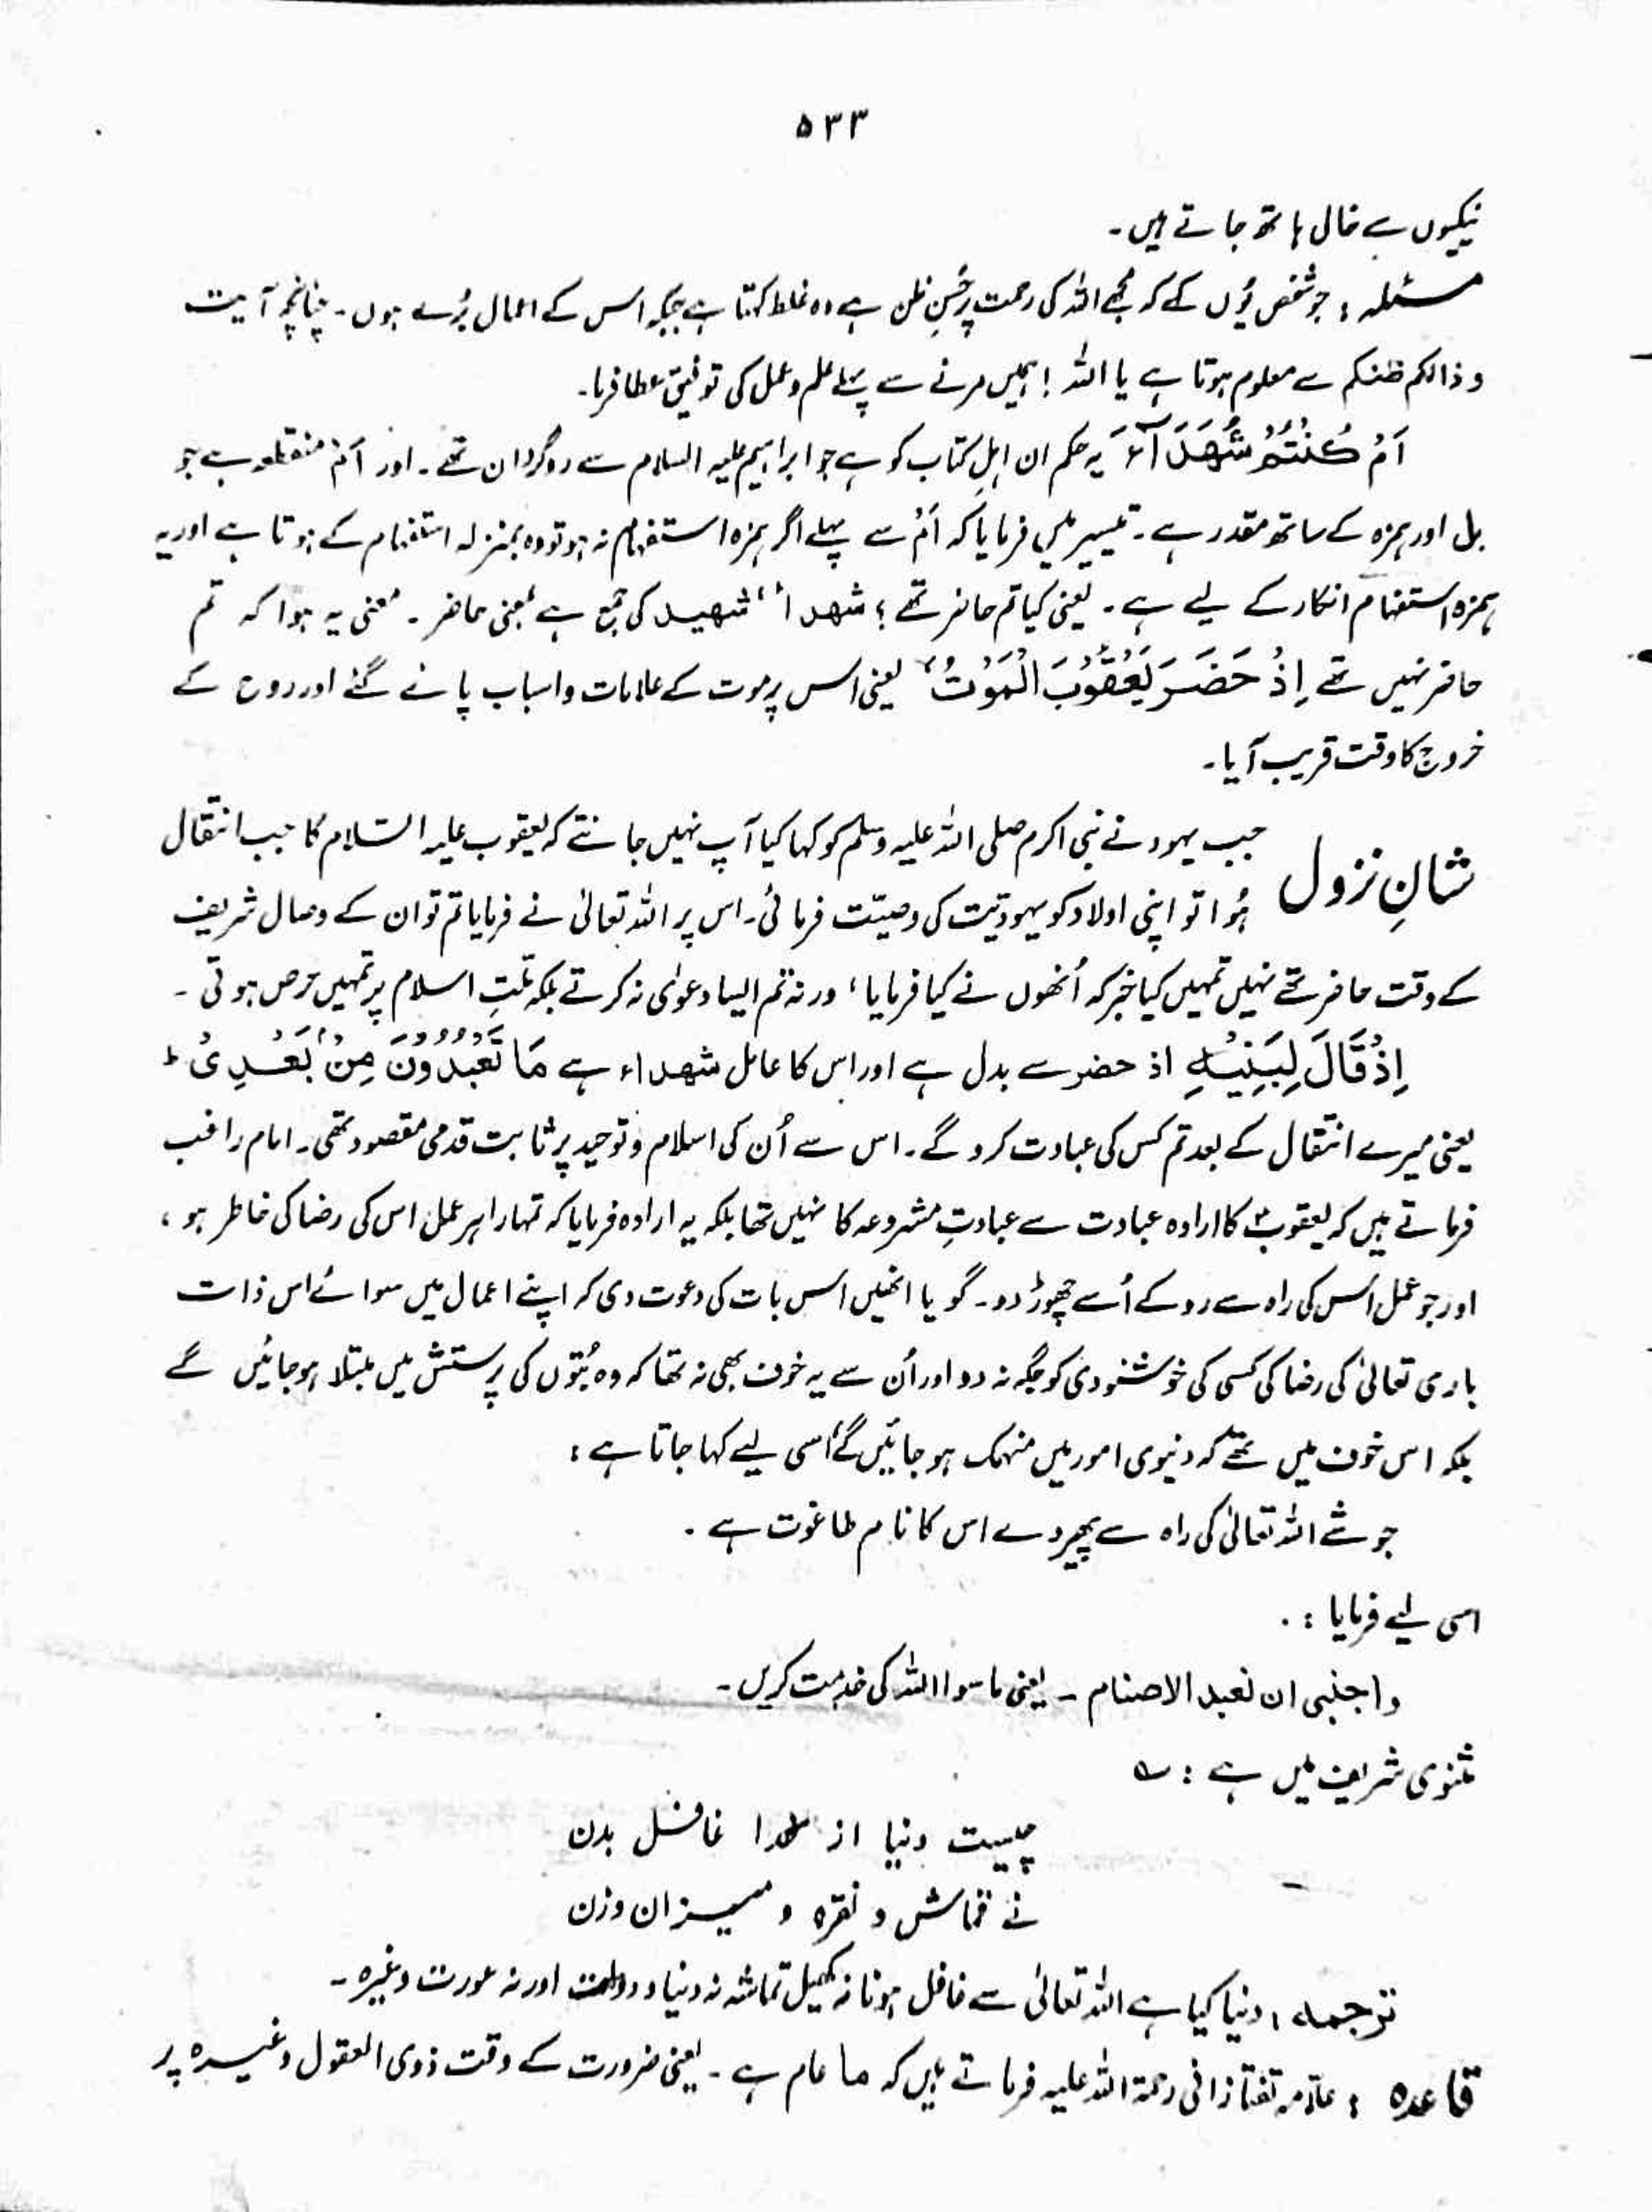 ۵۳۳
نیکیوں سے خالی ہاتھ جاتے ہیں۔
مسئلہ : جو شخص یُوں کہے کہ مجھے اللہ کی رحمت پر حُسنِ ظن ہے وہ غلط کہتا ہے جبکہ اس کے اعمال بُرے ہوں۔ چنانچہ آیت
و ذالکم ظنکم سے معلوم ہوتا ہے یا اللہ ! ہمیں مرنے سے پہلے علم و عمل کی توفیق عطا فرما۔
اَمْ كُنْتُمْ شُهَدَآءَ یہ حکم ان اہلِ کتاب کو ہے جو ابراہیم علیہ السلام سے روگردان تھے۔ اور اَمْ منقطعہ ہے جو
بل اور ہمزہ کے ساتھ مقدر ہے۔ تیسیر میں فرمایا کہ اَمْ سے پہلے اگر ہمزہ استفہام نہ ہو تو وہ بمنزلہ استفہام کے ہوتا ہے اور یہ
ہمزہ استفہام انکار کے لیے ہے۔ یعنی کیا تم حاضر تھے ؟ شھداء ، شھید کی جمع ہے بمعنی حاضر۔ معنی یہ ہوا کہ تم
حاضر نہیں تھے اِذْ حَضَرَ يَعْقُوْبَ الْمَوْتُ یعنی اس پر موت کے علامات و اسباب پائے گئے اور روح کے
خروج کا وقت قریب آیا۔
شانِ نزول جب یہود نے نبی اکرم صلی اللہ علیہ وسلم کو کہا کیا آپ نہیں جانتے کہ یعقوب علیہ السّلام کا جب انتقال
ہُوا تو اپنی اولاد کو یہودیّت کی وصیّت فرمائی۔ اس پر اللہ تعالیٰ نے فرمایا تم تو ان کے وصال شریف
کے وقت حاضر تھے نہیں تمہیں کیا خبر کہ اُنھوں نے کیا فرمایا، ورنہ تم ایسا دعوٰی نہ کرتے بلکہ ملّتِ اسلام پر تمہیں حرص ہوتی۔
اِذْ قَالَ لِبَنِيْهِ اذ حضر سے بدل ہے اور اس کا عامل شھداء ہے مَا تَعْبُدُوْنَ مِنْۢ بَعْدِىْ ط
یعنی میرے انتقال کے بعد تم کس کی عبادت کرو گے۔ اس سے اُن کی اسلام و توحید پر ثابت قدمی مقصود تھی۔ امام راغب
فرماتے ہیں کہ یعقوبؑ کا ارادہ عبادت سے عبادتِ مشروعہ کا نہیں تھا بلکہ یہ ارادہ فرمایا کہ تمہارا ہر عمل اس کی رضا کی خاطر ہو،
اور جو عمل اس کی راہ سے روکے اُسے چھوڑ دو۔ گویا انھیں اس بات کی دعوت دی کہ اپنے اعمال میں سوائے اس ذات
باری تعالیٰ کی رضا کی کسی کی خوشنودی کو جگہ نہ دو اور اُن سے یہ خوف بھی نہ تھا کہ وہ بُتوں کی پرستش میں مبتلا ہو جائیں گے
بلکہ اس خوف میں تھے کہ دنیوی امور میں منہمک ہو جائیں گے اسی لیے کہا جاتا ہے :
جو شے اللہ تعالیٰ کی راہ سے پھیر دے اس کا نام طاغوت ہے ۔
اسی لیے فرمایا : ۔
واجنبی ان نعبد الاصنام ۔ یعنی ماسوا اللہ کی خدمت کریں۔
مثنوی شریف میں ہے : ؎
چیست دنیا از خدا غافل بدن
نے قماش و نقرہ و میزان و زن
ترجمہ : دنیا کیا ہے اللہ تعالیٰ سے غافل ہونا نہ کھیل تماشہ نہ دنیا و دولت اور نہ عورت وغیرہ ۔
قاعدہ : علامہ تفتازانی رحمۃ اللہ علیہ فرماتے ہیں کہ ما عام ہے ۔ یعنی ضرورت کے وقت ذوی العقول وغیرہ پر